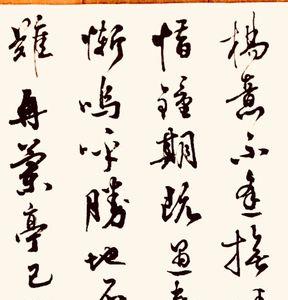 楊意不逢撫
惜鍾期既遇
慚嗚呼勝地不
難再蘭亭已